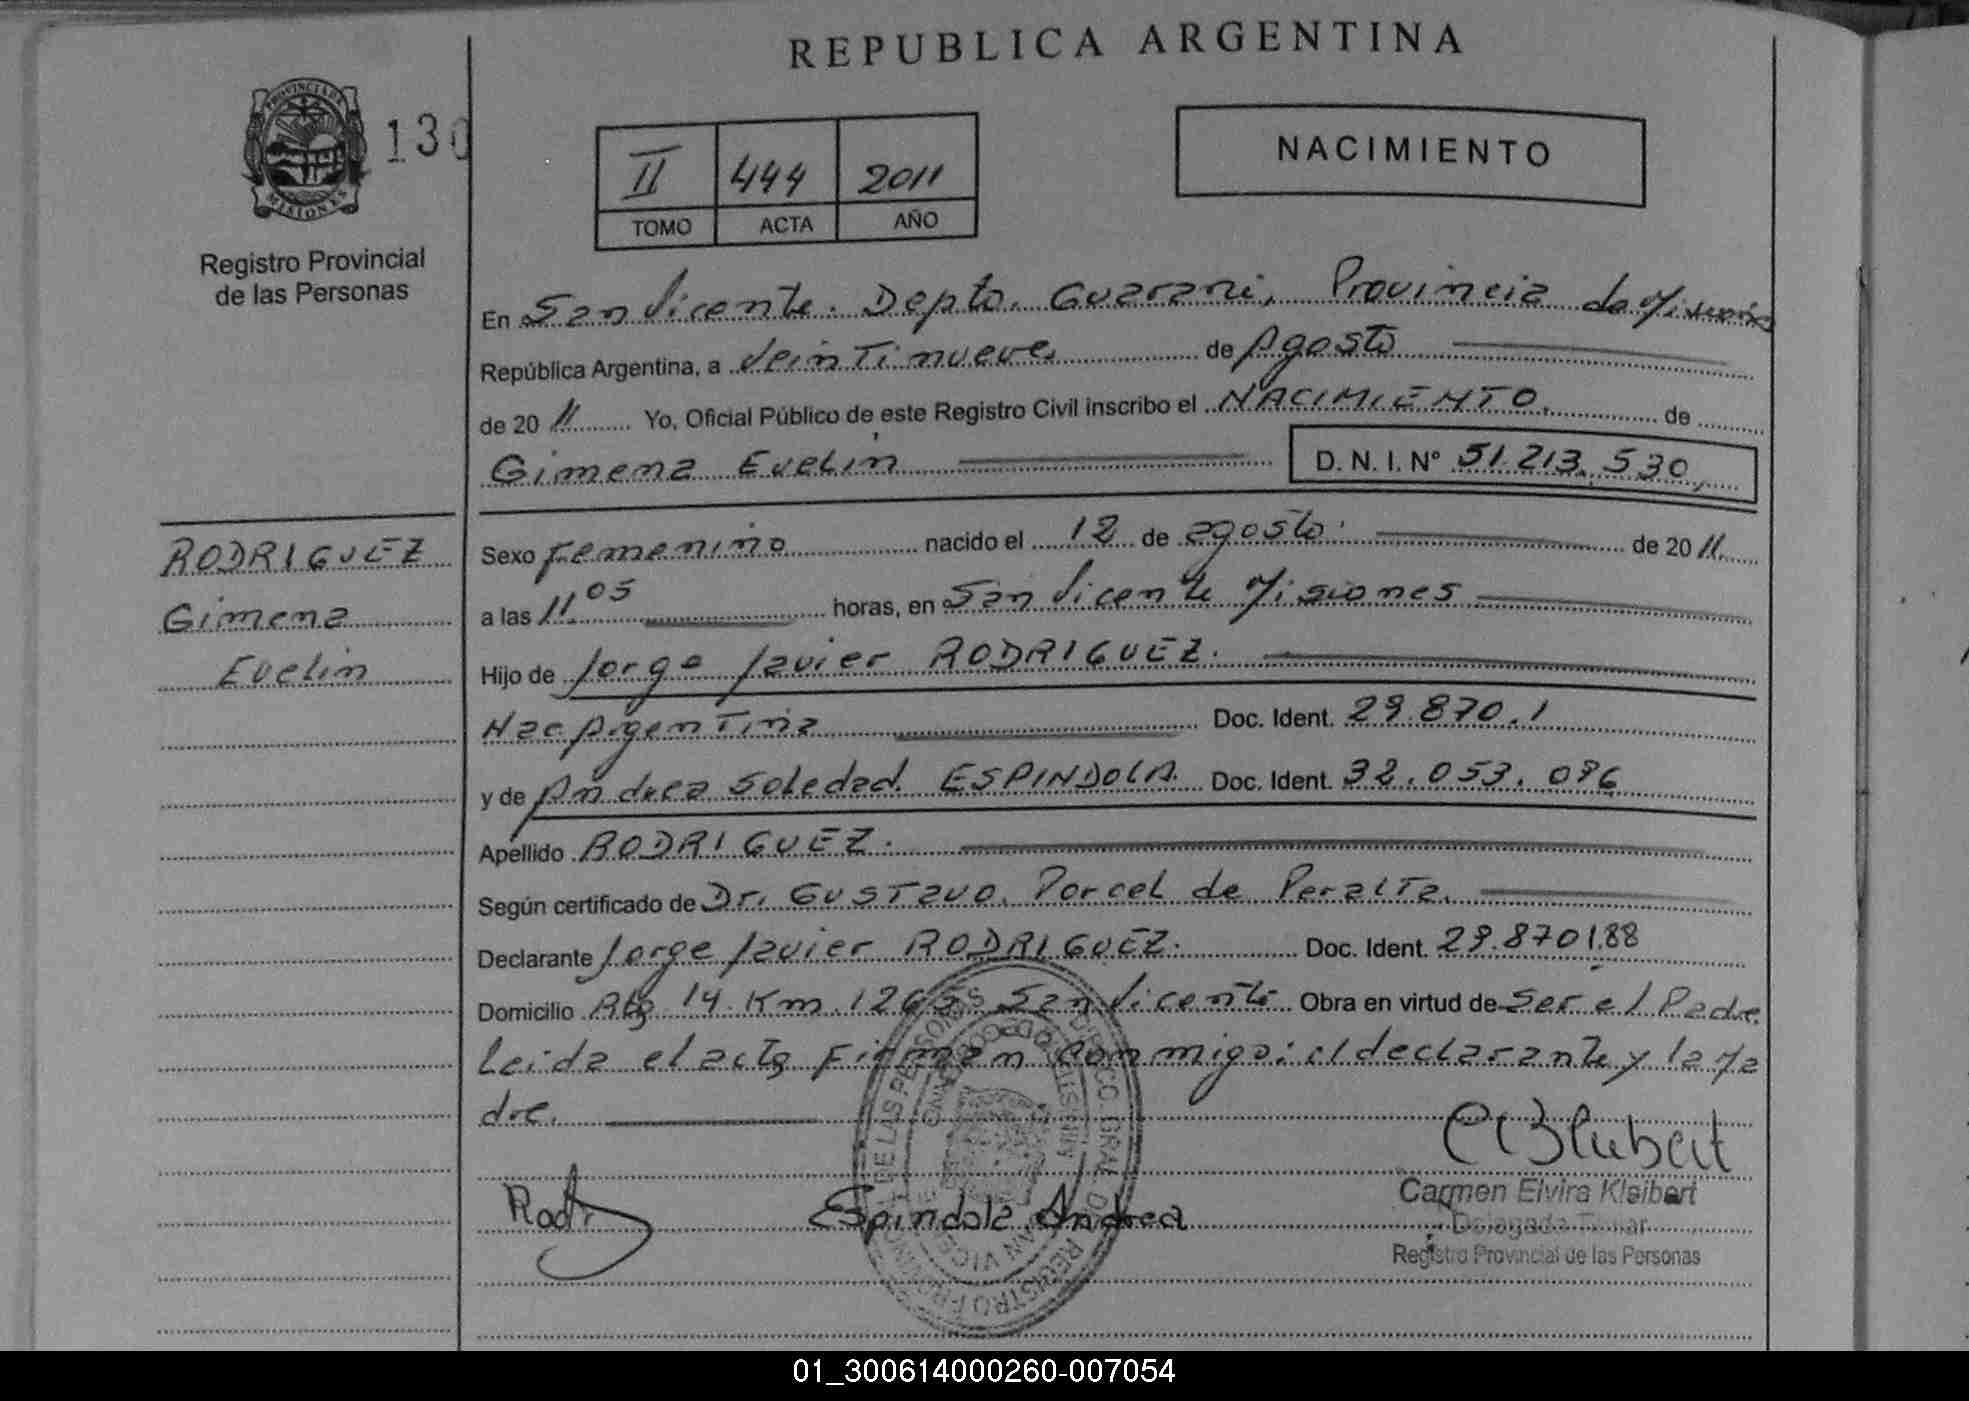 REPUBLICA ARGENTINA
PROVINCIA DE
MISIONES
130
Registro Provincial
de las Personas
II 444 2011
TOMO ACTA AÑO
NACIMIENTO
En San Vicente. Depto. Guarani, Provincia de Misiones
República Argentina, a Veintinueve de Agosto
de 20 11 Yo, Oficial Público de este Registro Civil inscribo el NACIMIENTO. de
Gimena Evelin D. N. I. N° 51.213.530,
RODRIGUEZ
Gimena
Evelin
Sexo Femenino nacido el 12 de agosto. de 20 11.
a las 11.05 horas, en San Vicente Misiones
Hijo de Jorge Javier RODRIGUEZ.
Nac Argentina Doc. Ident. 29.870.1
y de Andrea Soledad. ESPINDOLA. Doc. Ident. 32.053.096
Apellido RODRIGUEZ.
Según certificado de Dr. Gustavo. Porcel de Peralta.
Declarante Jorge Javier RODRIGUEZ. Doc. Ident. 29.870188
Domicilio Rta 14 Km. 1265 San Vicente Obra en virtud de Ser el Padre
Leida el acta Firman conmigo: el declarante y la Ma
dre.
Rodr
Espindola Andrea
Carmen Elvira Kleibert
Delegada Titular
Registro Provincial de las Personas
01_300614000260-007054